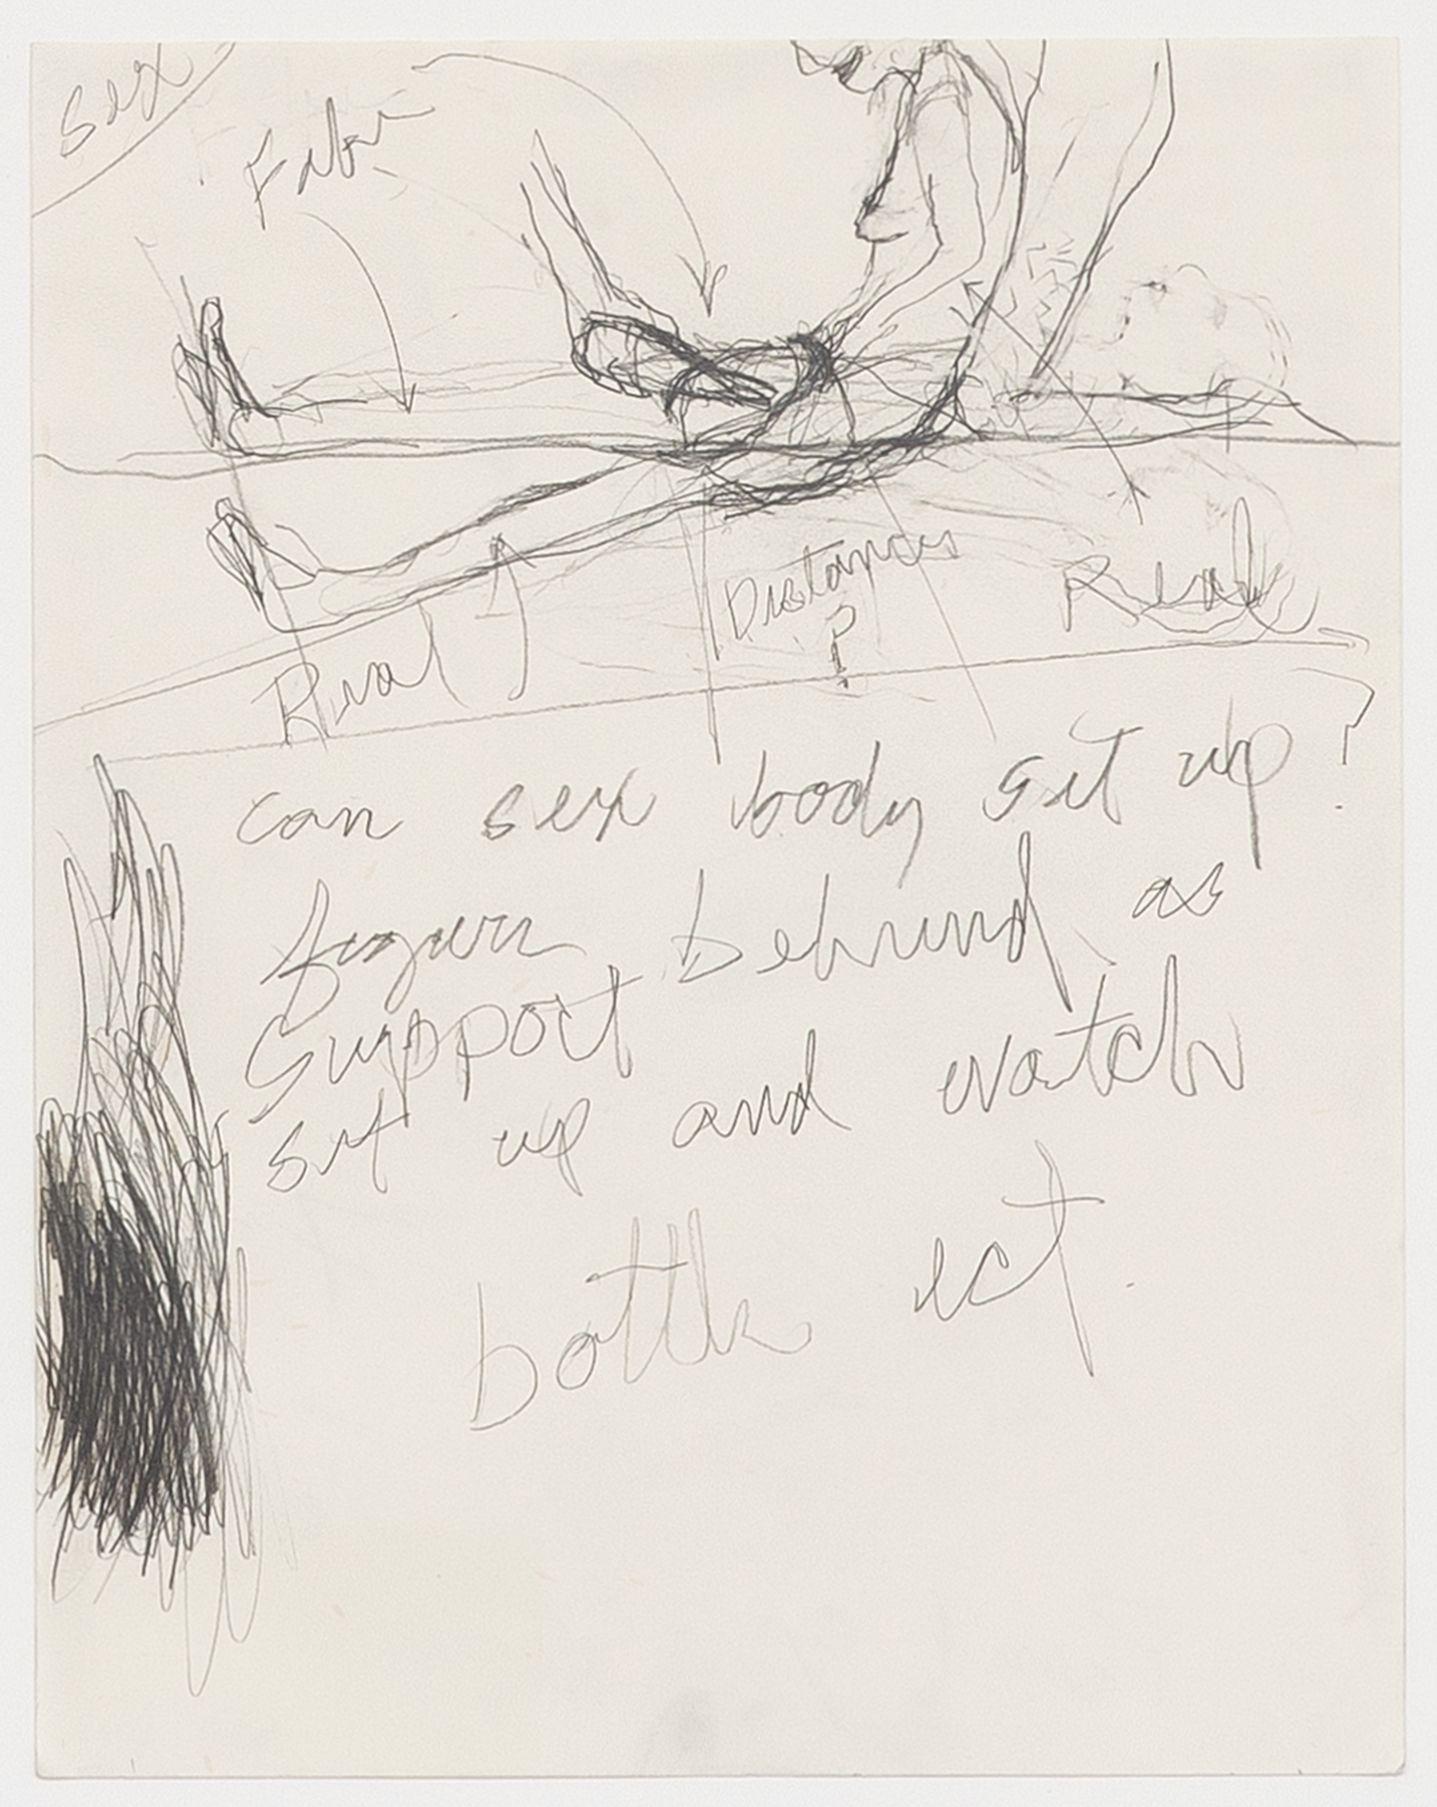 Sex
Fake
Distance
?
Real
Real
can sex body sit up?
figure behind as
support
sit up and watch
bottle ect.